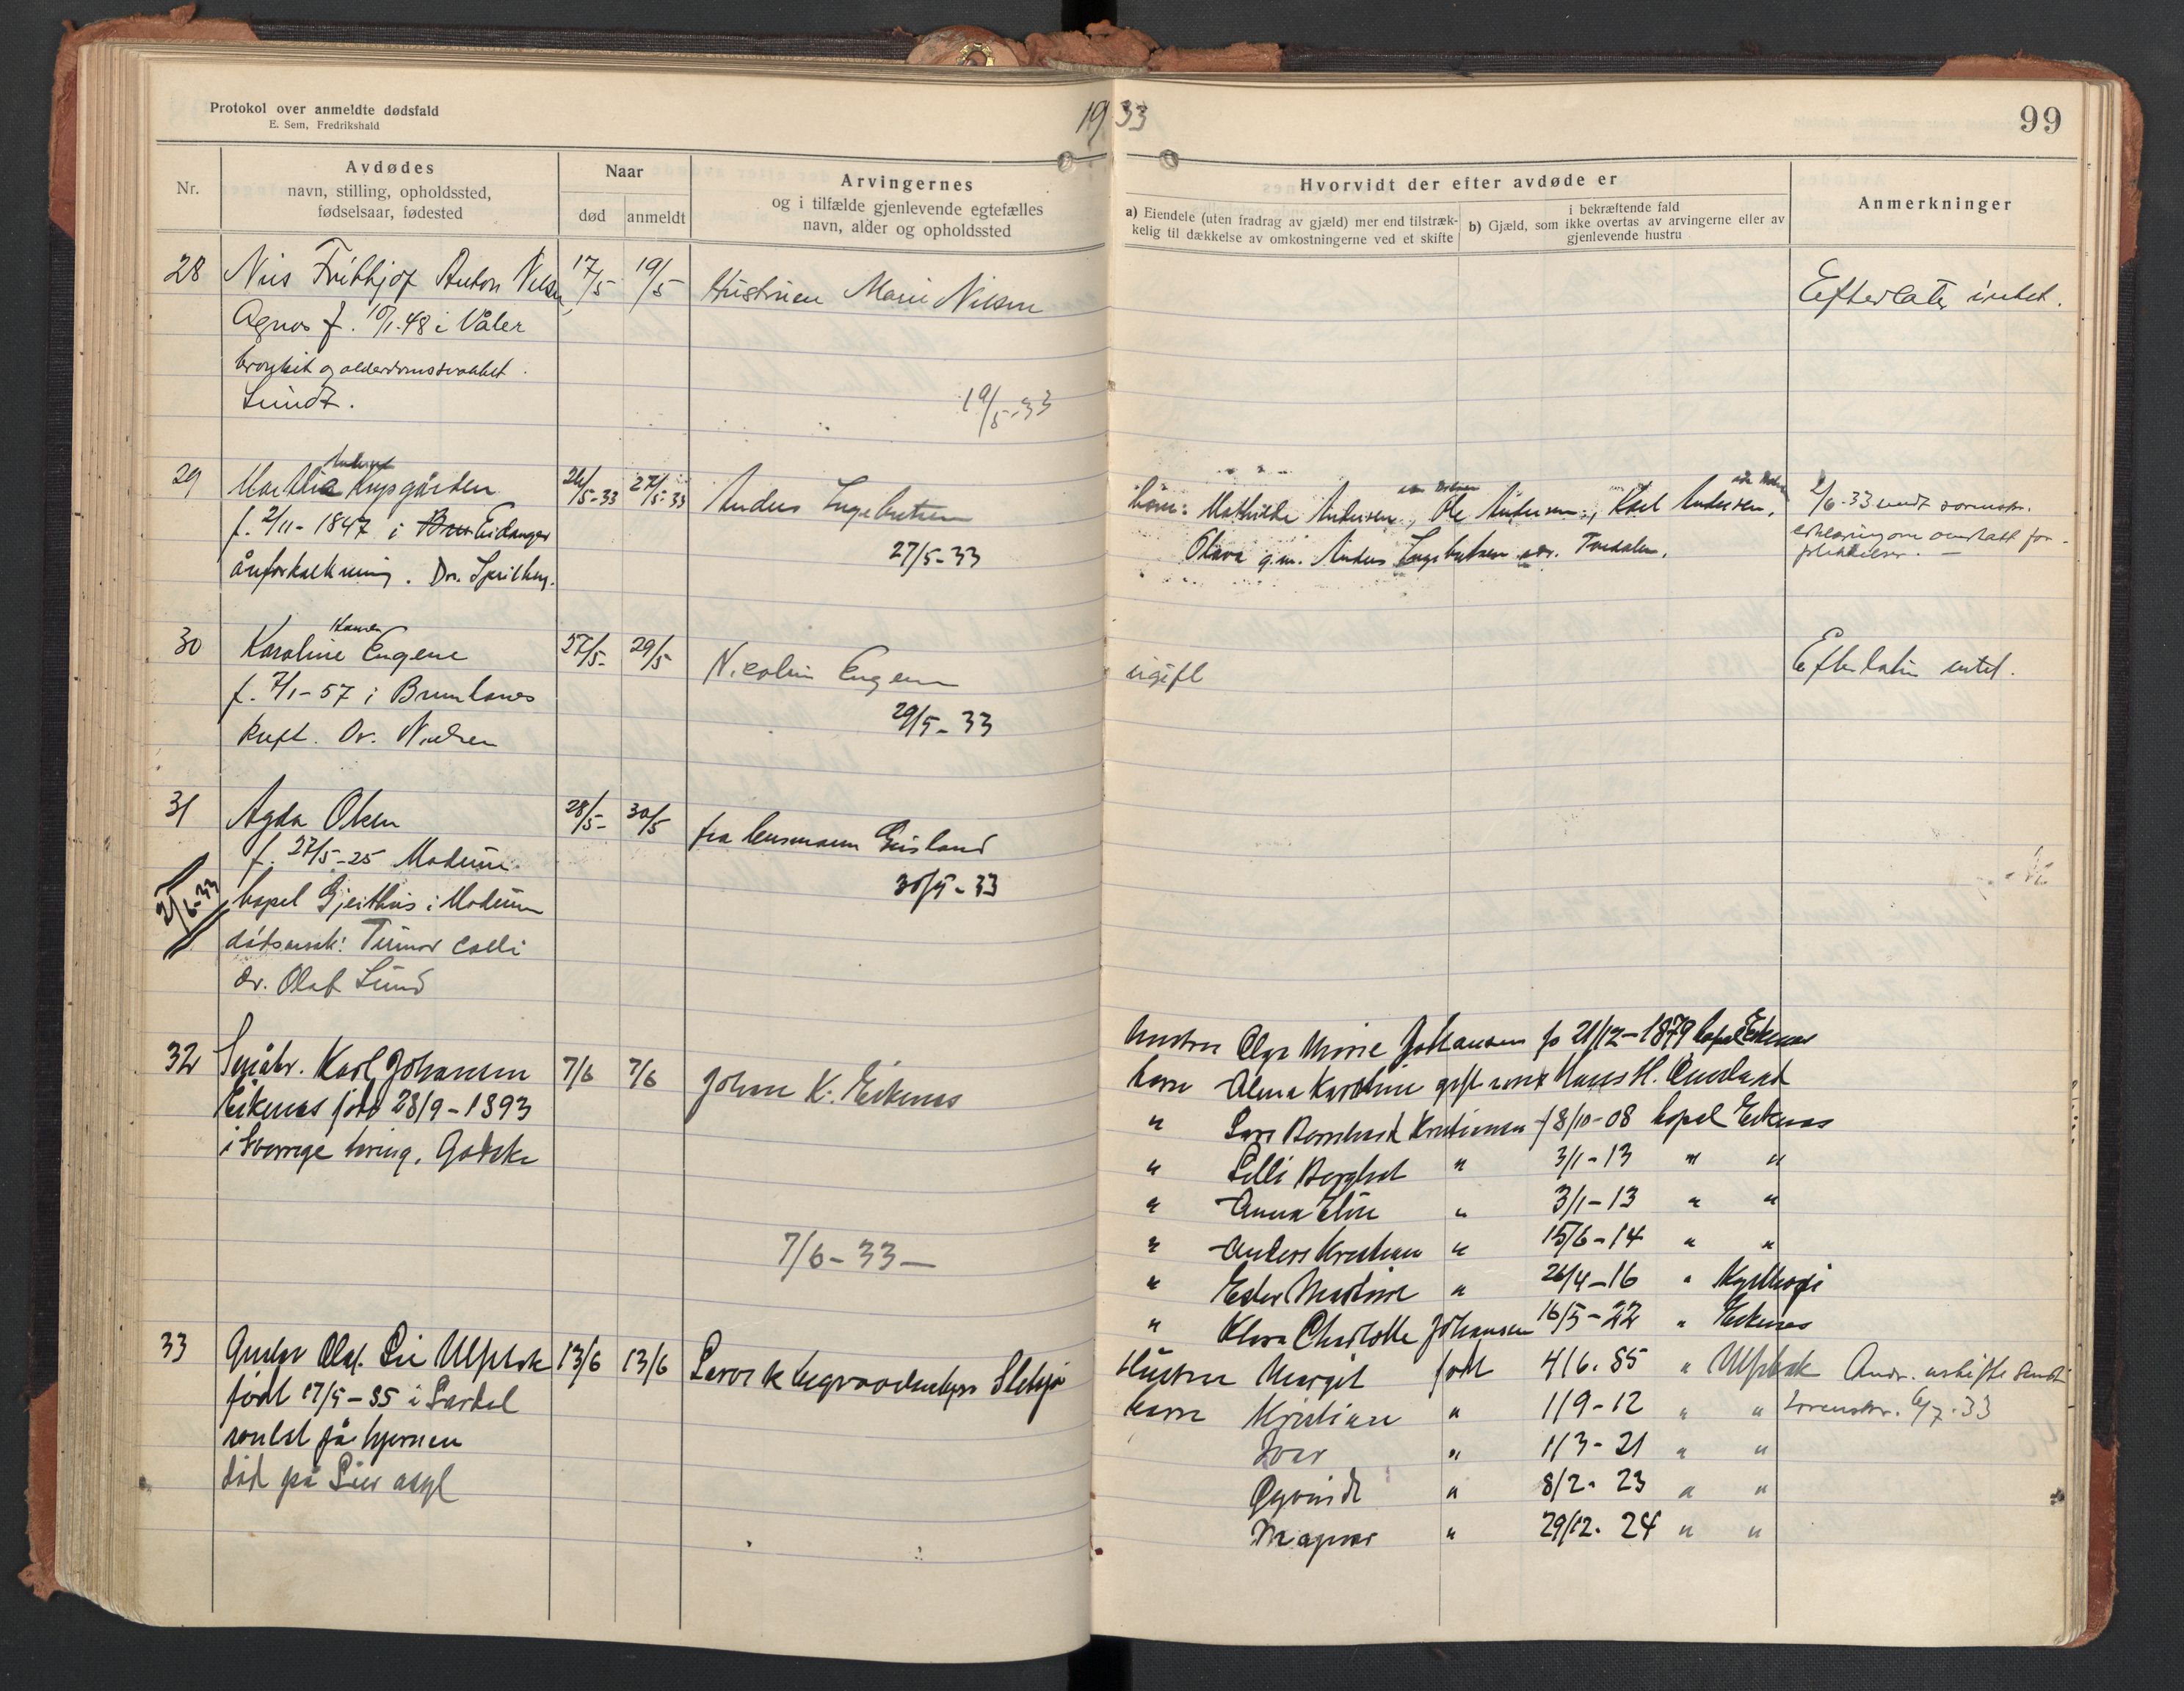 Protokol over anmeldte dødsfald
E. Sem, Fredrikshald
1933
99
Nr.
Avdødes
navn, stilling, opholdssted,
fødselsaar, fødested
Naar
død
anmeldt
Arvingernes
og i tilfælde gjenlevende egtefælles
navn, alder og opholdssted
Hvorvidt der efter avdøde er
a) Eiendele (uten fradrag av gjæld) mer end tilstræk-
kelig til dækkelse av omkostningerne ved et skifte
i bekræftende fald
b) Gjæld, som ikke overtas av arvingerne eller av
gjenlevende hustru
Anmerkninger
28 Nils Frithjof Anton Nilsen 17/5 19/5 Hustruen Marie Nilsen Efterlater intet.
Agnes f. 10/1.48 i Våler
bronkit og alderdomssvakhet.
Lund.
19/5-33
29 Marthia Krysgården 26/5-33 27/5-33 Anders Ingebretsen
barn: Mathilde Andersen, Ole Andersen, Karl Andersen,
2/6-33 sendt sorenskr.
f. 2/11-1847 i Eidanger
27/5-33
Olava g.m. Anders Ingebretsen adr. Tvedalen.
erklæring om overtatt for-
pliktelser.
åreforkalkning. Dr.
30 Karoline Eugene 27/5- 29/5 Nicolin Eugen ugift Efterlater intet.
Hansen
f. 7/1-57 i Brunlanes
29/5-33
kreft. Dr. Nielsen
31 Agda Olsen 28/5- 30/5 fra lensmann Geisland
f. 27/5-25 Modum
30/5-33
21/6-33
bopel Gjeithus i Modum
dødsårsak: Tumor
dr. Olaf Lund
32 Småbr. Karl Johansen 7/6 7/6 Johan K. Eikenes
Eikenes født 28/9-1893
i Sverige tæring. Godske
7/6-33-
hustru Olga Marie Johansen f. 21/12-1879 bopel Eikenes
barn Alma Karoline gift med Hans H. Omland
" Lars Bernhard Kristiansen f 8/10-08 bopel Eikenes
" Lilli Borghild " 3/1-13 " "
" Anna Elise " 3/1-13 " "
" Anders Kristian " 15/6-14 " "
" Ester Martine " 26/4-16 "
" Klara Charlotte Johansen 16/5-22 " Eikenes
33 Gustav Olaf. Lie Ulfsbak 13/6 13/6 Larvik begravelsesbyrå
født 17/5-85 i Larkol
svulst på hjernen
død på Lier asyl
Hustru Margit født 4/6.85 " Ulfsbak
Andr. uskifte sendt
barn Kristian " 1/9-12 " "
sorenskr. 6/7-33
Ivar " 1/3-21 " "
Øyvind " 8/2-23 " "
Magnar " 29/12-24 " "